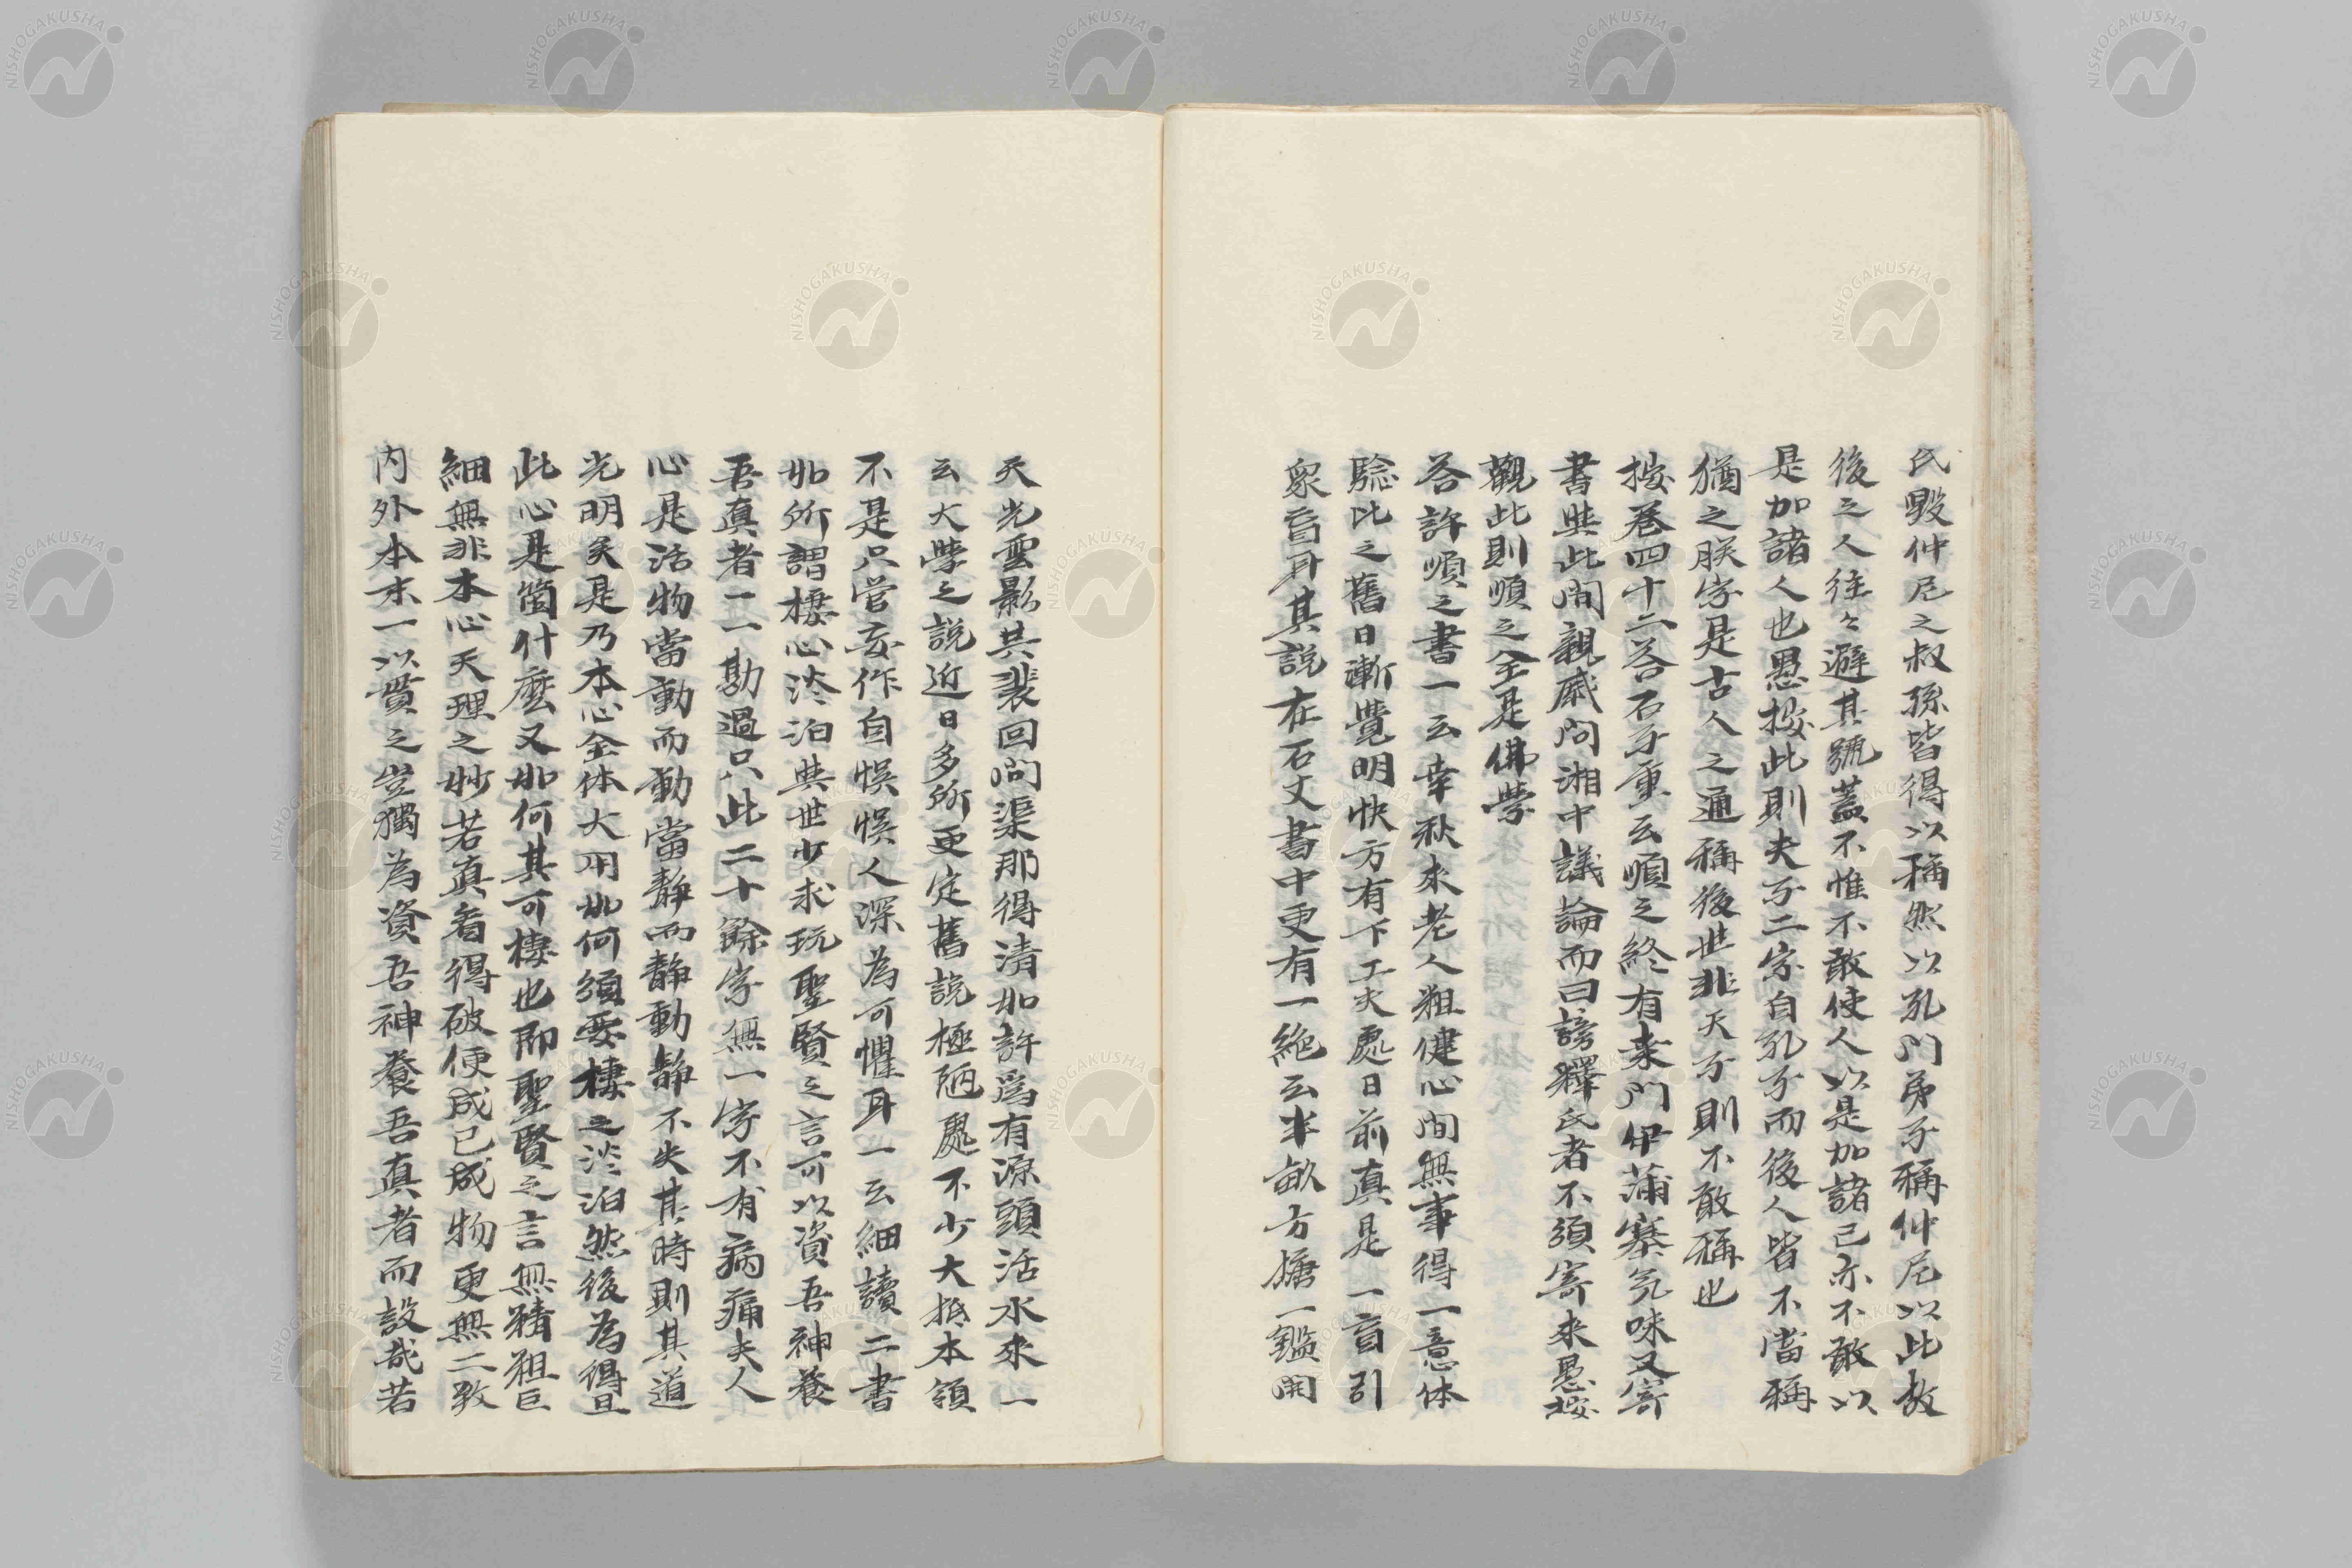 氏毀仲尼之叔孫皆得以稱然以孔門弟子稱仲尼以此故
後之人往々避其號蓋不惟不敢使人以是加諸己亦不敢以
是加諸人也愚按此則夫子二字自孔子而後人皆不當稱
猶之朕字是古人之通稱後世非天子則不敢稱也
按卷四十二答石子重云順之終有桒門伊蒲塞氣味又寄
書與此間親戚問湘中議論而曰謗釋氏者不須寄来愚按
觀此則順之全是佛學
答許順之書一云幸秋来老人粗健心間無事得一意体
驗比之舊日漸覺明快方有下工夫處日前真是一盲引
衆盲耳其說在石丈書中更有一絶云半畝方塘一鑑開
天光雲影共裴回問渠那得清如許為有源頭活水来一
云大學之說近日多所更定舊說極陋處不少大抵本領
不是只管妄作自悞悞人深為可懼耳一云細讀二書
如所謂棲心淡泊與世少求玩聖賢之言可以資吾神養
吾真者一一勘過只此二十餘字無一字不有病痛夫人
心是活物當動而動當靜而靜動靜不失其時則其道
光明矣是乃本心全体大用如何須要棲之淡泊然後為得且
此心是箇什麼又如何其可棲也耶聖賢之言無精粗巨
細無非本心天理之妙若真看得破便成己成物更無二致
内外本末一以貫之豈獨為資吾神養吾真者而設哉若